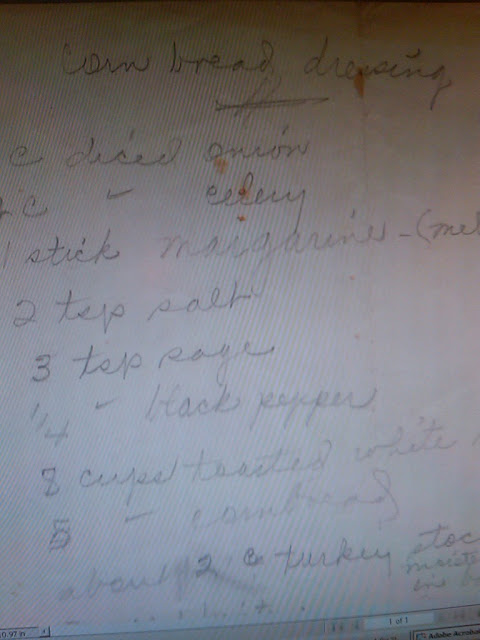 Corn bread dressing
c diced onion
c " celery
1 stick margarine - (mel
2 tsp salt
3 tsp sage
1/4 " black pepper
8 cups toasted white
5 " cornbread
about 2 c turkey stoc
0.97 in
1 of 1
Adobe Acroba